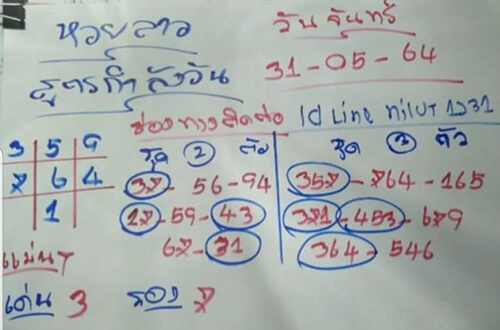 หวยลาว
วันจันทร์
31-05-64
สูตรกำลังวัน
ช่องทางติดต่อ Id Line nilUT 1931
3 5 9
7 6 4
1
ชุด 2 ตัว
37- 56-94
17-59-43
67-31
ชุด 3 ตัว
357-764-165
371-453-679
364-546
แม่นๆ
เด่น 3 รอง 7